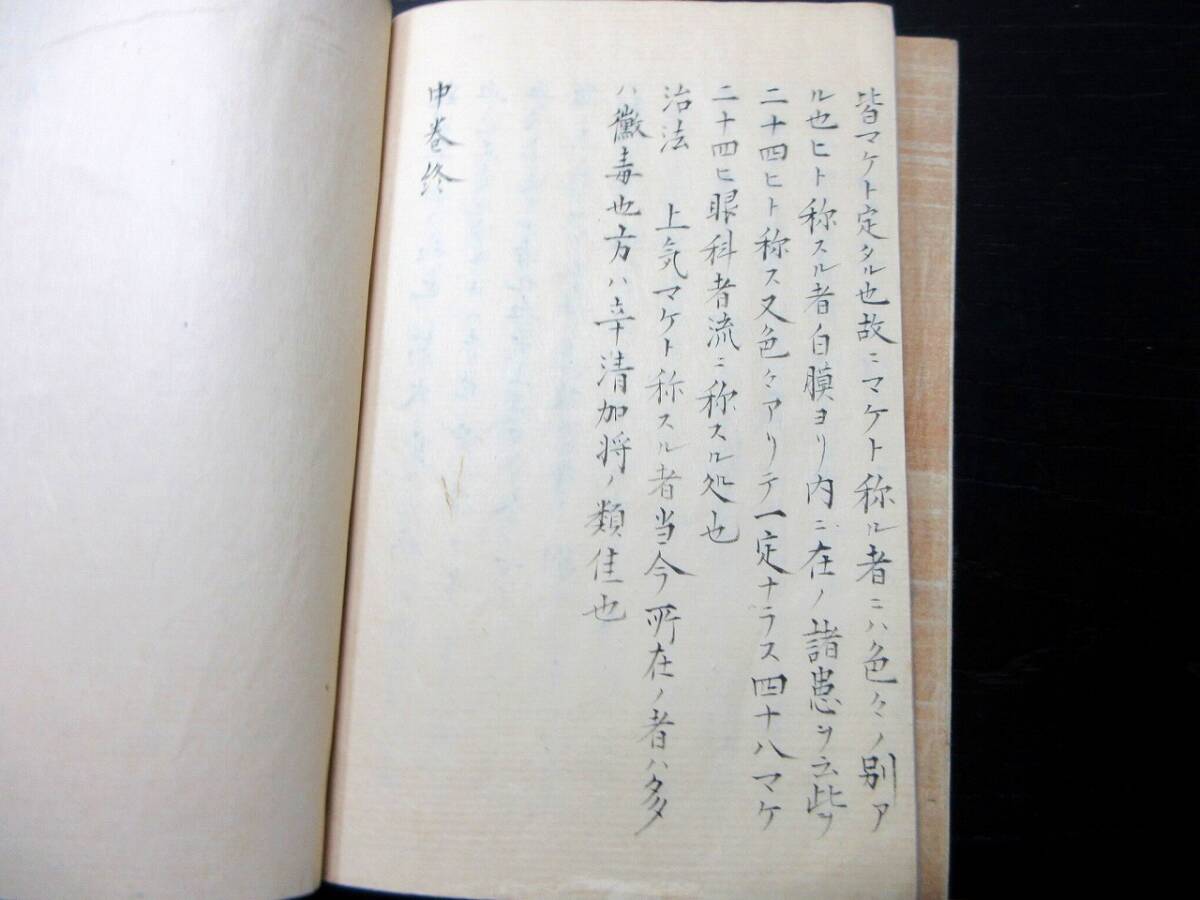 皆マケト定タル也故ニマケト称ル者ニハ色々ノ別ア
ル也ヒト称スル者白膜ヨリ内ニ在ノ諸患ヲ云此ヲ
二十四ヒト称ス又色々アリテ一定ナラス四十八マケ
二十四ヒ眼科者流ニ称スル処也
治法 上気マケト称スル者当今所在ノ者ハ多ク
ハ黴毒也方ハ辛清加将ノ類佳也
中巻終